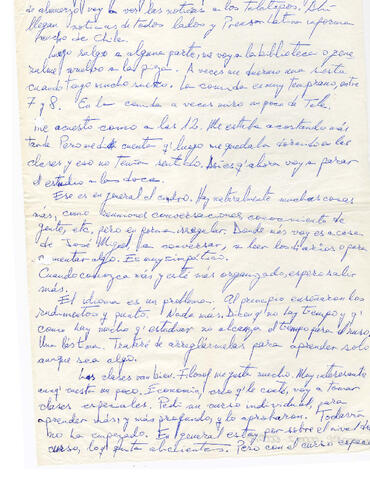 de almorzar, voy a ver las noticias a los teletipos. Ahí
llegan noticias de todos lados y Prensa Latina informa
mucho de Chile.
Luego salgo a alguna parte, me voy a la biblioteca o
vuelvo a la pieza. A veces me duermo una siesta
cuando tengo mucho sueño. La comida es muy temprano, entre
7 y 8. En la comida a veces miro un poco de Tele.
Me acuesto como a las 12. Me estaba acostando más
tarde. Pero me di cuenta q' luego me quedaba dormido en las
clases y eso no tenía sentido. Así es q' ahora voy a parar
el estudio a las doce.
Ese es en general el cuadro. Hay naturalmente muchas cosas
más, como reuniones conversaciones conocimiento de
gente, etc, pero en forma irregular. Donde más voy es a casa
de José Miguel, a conversar, a leer los diarios o para
comentar algo. Es muy simpático.
Cuando conozca más y esté más organizado, espero salir
más.
El idioma es un problema. Al principio enseñaron los
rudimentos y punto. Nada más. Dicen q' no hay tiempo y q'
como hay mucho q' estudiar no alcanza el tiempo para el ruso.
Una lástima. Trataré de arreglármelas para aprender solo
aunque sea algo.
Las clases van bien. Filosof. me gusta mucho. Muy interesante
aunq' cuesta un poco. Economía, creo q' le cuete, voy a tomar
clases especiales. Pedí un curso individual, para
aprender más y más profundo, y lo aprobaron. Todavía
no ha empezado. En general estoy por sobre el nivel del
curso, lo q' quita alicientes. Pero con el curso especial